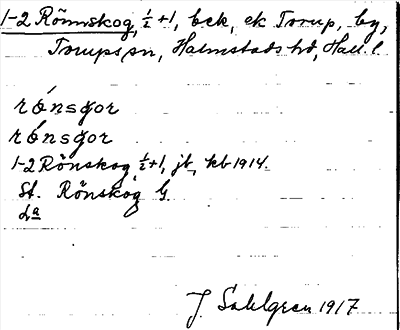 1-2 Rönnskog, ½+1, bck, ek Torup, by,
Torups sn, Halmstads hd, Hall. l.
rónsgor
rónsgor
1-2 Rönskog, ½+1, jb, kb 1914.
St. Rönskog G.
La
J. Sahlgren 1917